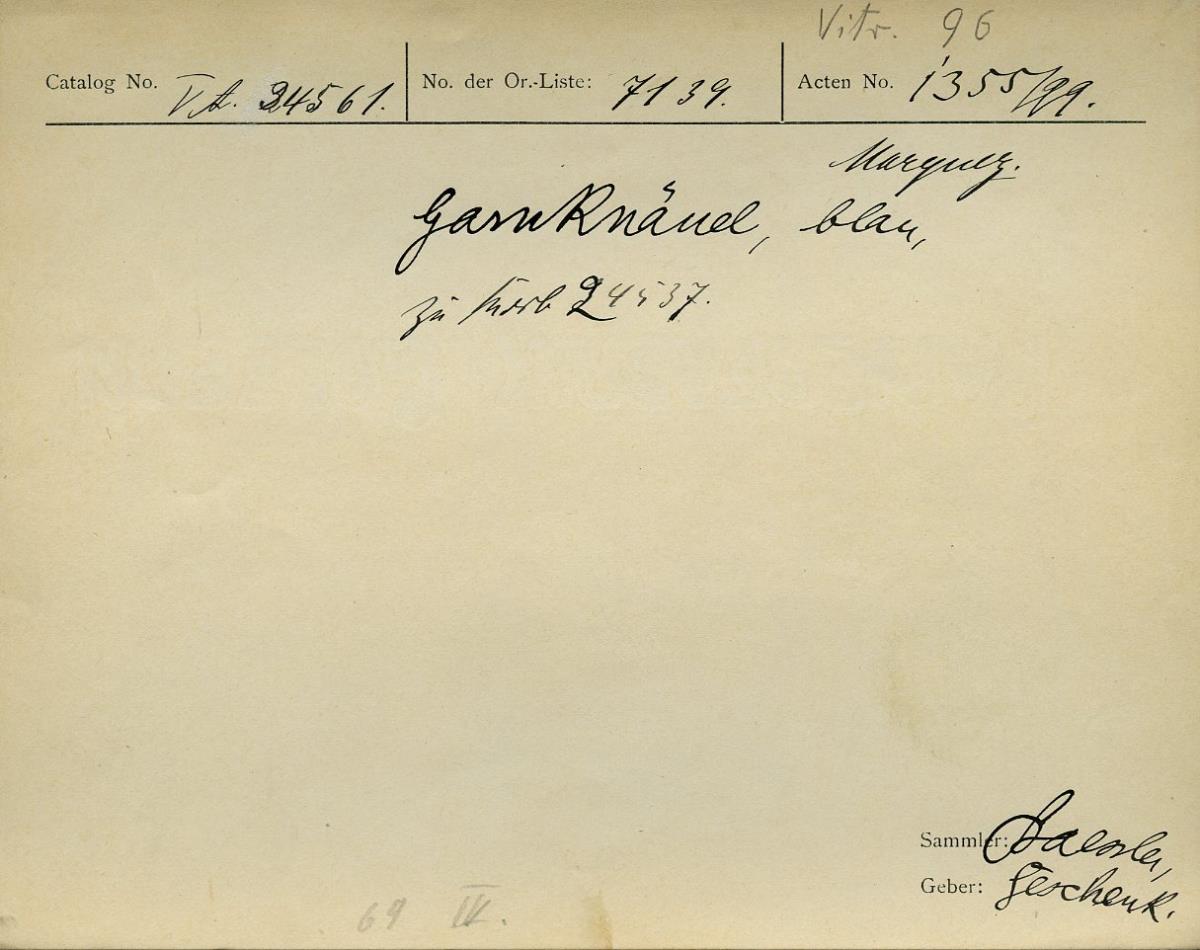 Vitr. 96
Catalog No. VA. 24561. No. der Or.-Liste: 7139. Acten No. 1355/99.
Marquez.
Garnknäuel, blau,
zu Korb 24537.
Sammler: Baessler,
Geber: Geschenk.
69 IV.